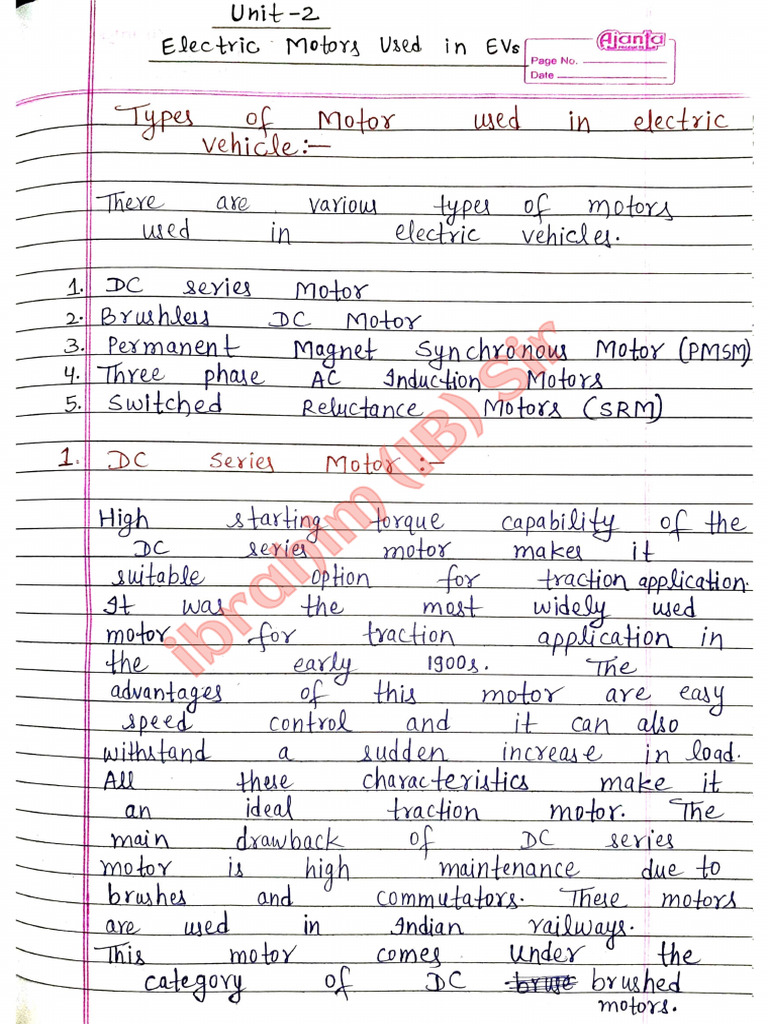 Unit-2
Electric Motors Used in EVs
Ajanta
PRODUCTS
Page No.
Date
Types of Motor used in electric
vehicle:-
There are various types of motors
used in electric vehicles.
1. DC series Motor
2. Brushless DC Motor
3. Permanent Magnet Synchronous Motor (PMSM)
4. Three phase AC Induction Motors
5. Switched Reluctance Motors (SRM)
1. DC Series Motor :-
High starting torque capability of the
DC series motor makes it
suitable option for traction application.
It was the most widely used
motor for traction application in
the early 1900s. The
advantages of this motor are easy
speed control and it can also
withstand a sudden increase in load.
All these characteristics make it
an ideal traction motor. The
main drawback of DC series
motor is high maintenance due to
brushes and commutators. These motors
are used in Indian railways.
This motor comes under the
category of DC bruse brushed
motors.
ibrahim (IB) Sir